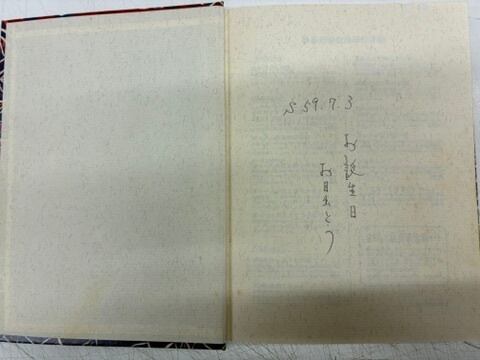 S 59.7.3
お誕生日
お目出とう